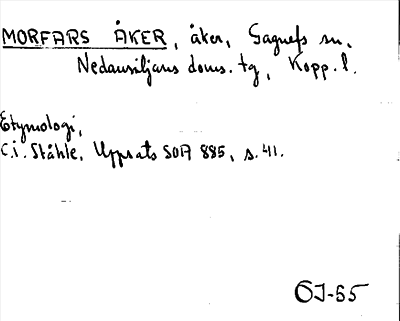 MORFARS ÅKER, åker, Gagnefs sn.
Nedansiljans doms. tg, Kopp. l.
Etymologi,
C.i. Ståhle, Uppsats SOA 885, s. 41.
ÖJ-55